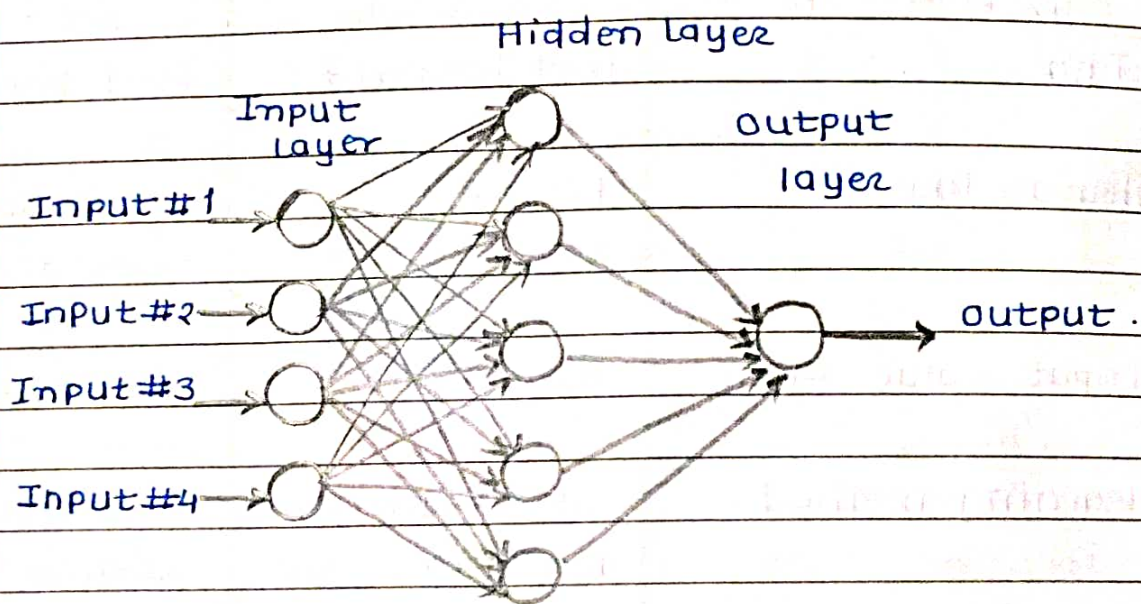 Hidden Layer
Input
Layer
output
layer
Input #1
Input #2
Input #3
Input #4
output.